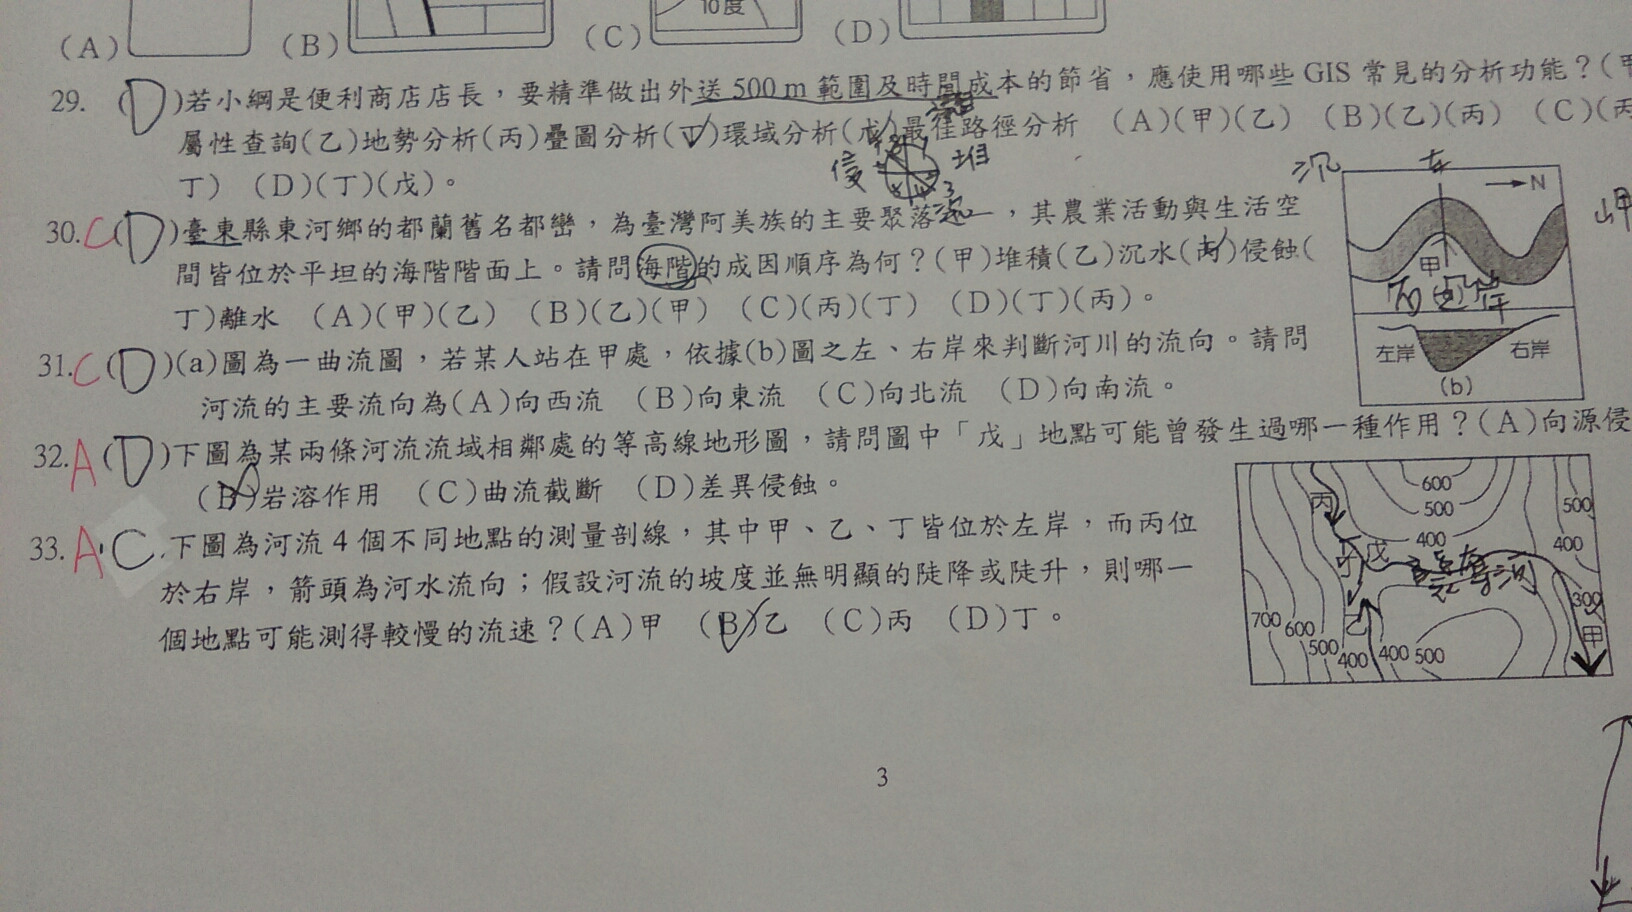 (A) (B) (C) 10度 (D)
29. (D)若小綱是便利商店店長，要精準做出外送 500 m 範圍及時間成本的節省，應使用哪些 GIS 常見的分析功能？(甲
屬性查詢(乙)地勢分析(丙)疊圖分析(丁)環域分析(戊)最佳路徑分析 (A)(甲)(乙) (B)(乙)(丙) (C)(丙
丁) (D)(丁)(戊)。
侵 堆
沉 左
30. C (D)臺東縣東河鄉的都蘭舊名都巒，為臺灣阿美族的主要聚落之一，其農業活動與生活空
間皆位於平坦的海階階面上。請問海階的成因順序為何？(甲)堆積(乙)沉水(丙)侵蝕(
丁)離水 (A)(甲)(乙) (B)(乙)(甲) (C)(丙)(丁) (D)(丁)(丙)。
N
甲
左岸 右岸
(b)
岬
31. C (D)(a)圖為一曲流圖，若某人站在甲處，依據(b)圖之左、右岸來判斷河川的流向。請問
河流的主要流向為(A)向西流 (B)向東流 (C)向北流 (D)向南流。
32. A (D)下圖為某兩條河流流域相鄰處的等高線地形圖，請問圖中「戊」地點可能曾發生過哪一種作用？(A)向源侵
(B)岩溶作用 (C)曲流截斷 (D)差異侵蝕。
33. A C 下圖為河流 4 個不同地點的測量剖線，其中甲、乙、丁皆位於左岸，而丙位
於右岸，箭頭為河水流向；假設河流的坡度並無明顯的陡降或陡升，則哪一
個地點可能測得較慢的流速？(A)甲 (B)乙 (C)丙 (D)丁。
600
丙 500 500
400 400
丁 戊 河
300
700 600 乙 甲
500 400 400 500
3